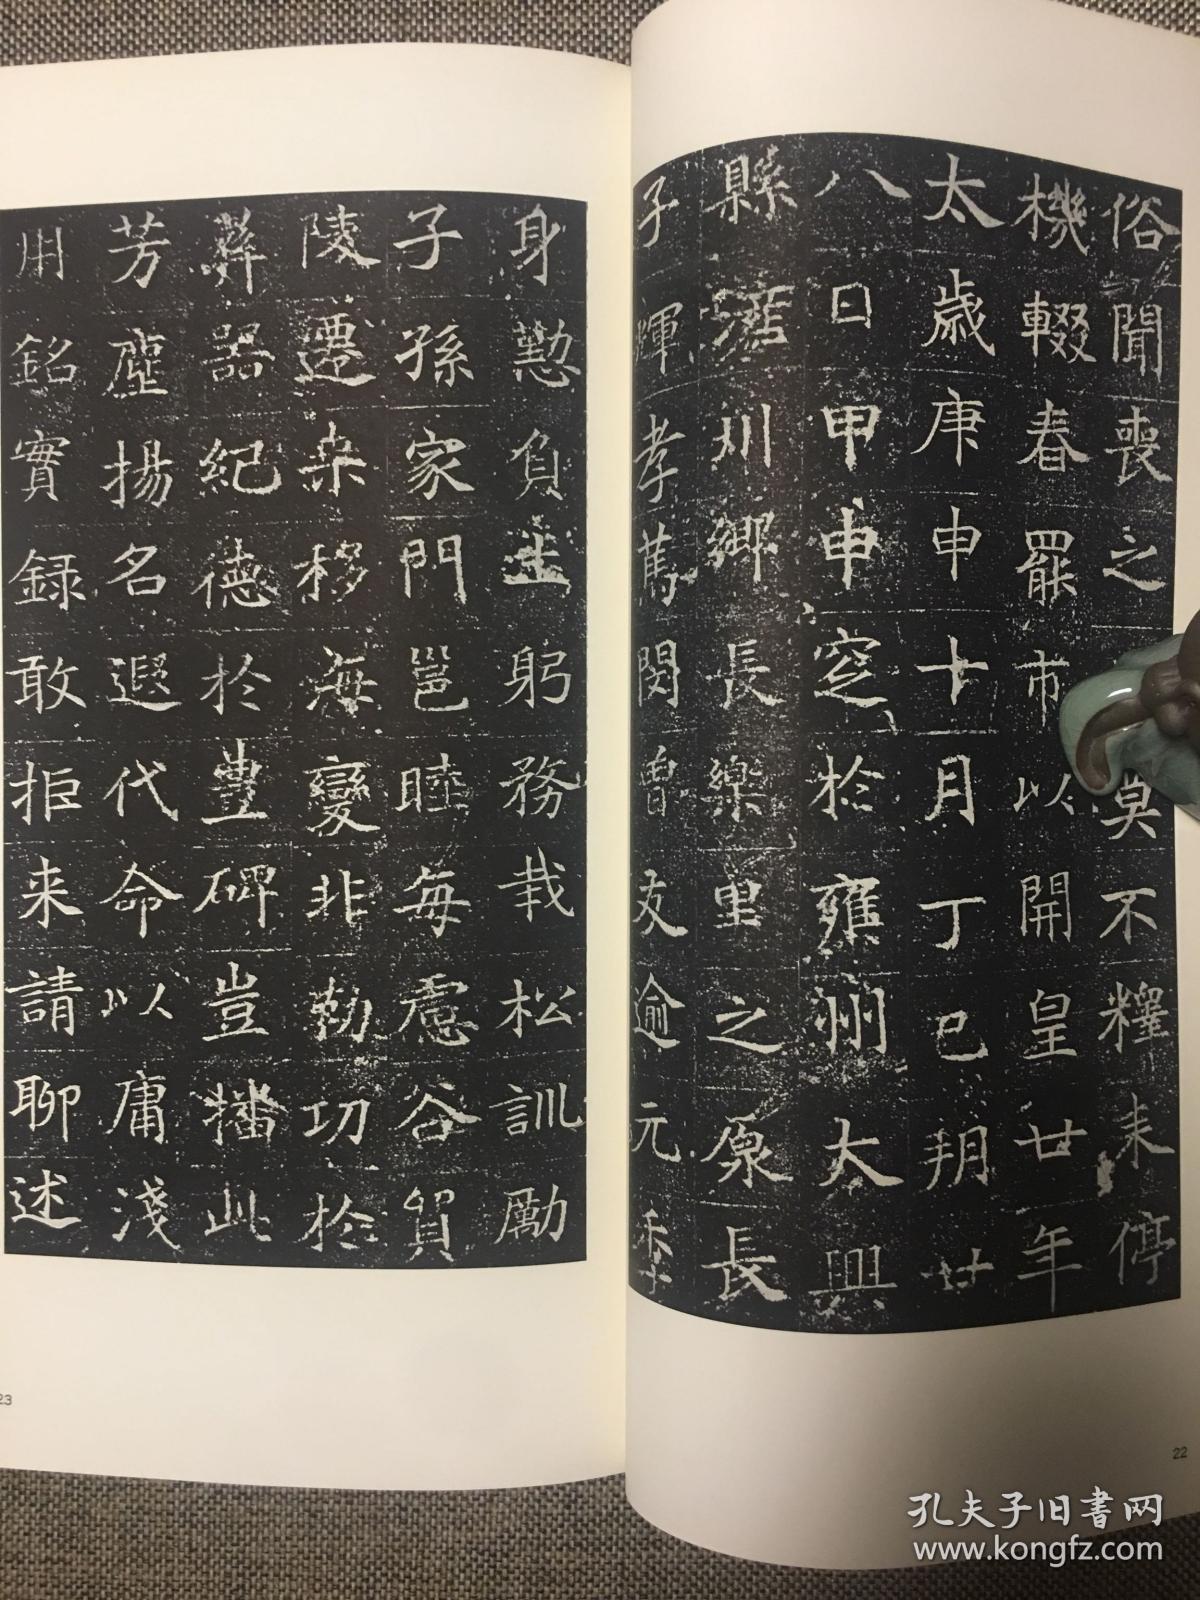 俗聞喪之莫不釋耒停
機輟春罷市以開皇廿年
太歲庚申十月丁巳朔廿
八日甲申窆於雍州大興
縣滻川鄉長樂里之原長
子暉孝篤閔曾友逾元季
身懃負土躬務栽松訓勵
子孫家門邕睦每慮谷貿
陵遷桒移海變非勒功於
彝器紀德於豊碑豈播此
芳塵揚名遐代命以庸淺
用銘實録敢拒来請聊述
23
22
孔夫子旧書网
www.kongfz.com